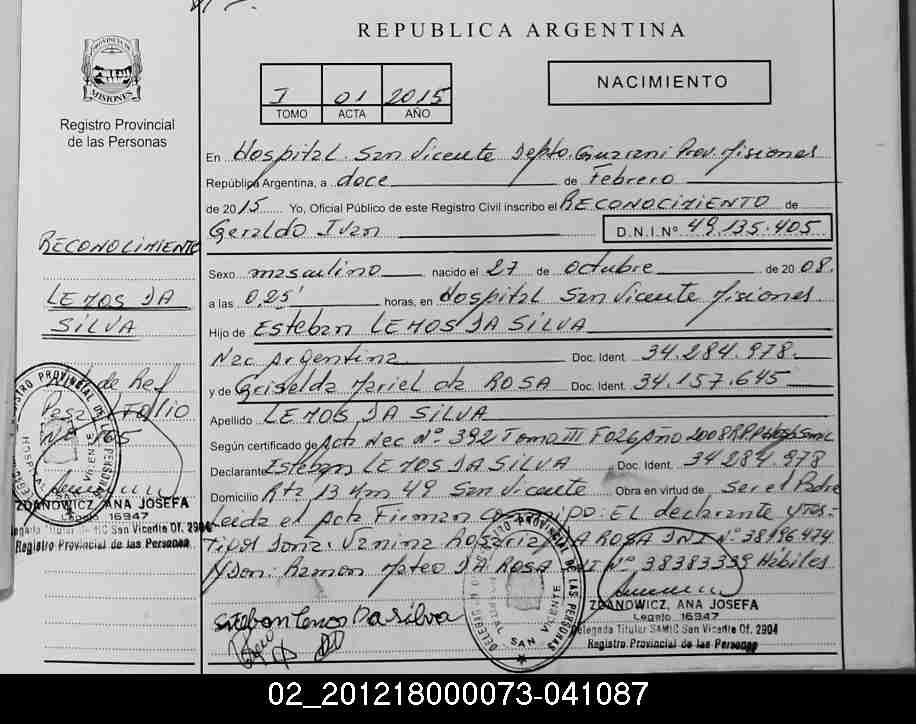 REPUBLICA ARGENTINA
PROVINCIA DE
MISIONES
Registro Provincial
de las Personas
I 01 2015
TOMO ACTA AÑO
NACIMIENTO
En Hospital San Vicente Depto. Guarani Prov. Misiones
República Argentina, a doce de Febrero
de 2015 Yo, Oficial Público de este Registro Civil inscribo el RECONOCIMIENTO de
Geraldo Ivan D.N.I Nº 49.135.405
Sexo masculino nacido el 27 de octubre de 2008.
a las 0,25' horas, en Hospital San Vicente Misiones.
Hijo de Esteban LEMOS DA SILVA
Nac Argentina Doc. Ident. 34.284.978.
y de Griselda Mariel da ROSA Doc. Ident. 34.157.645
Apellido LEMOS DA SILVA
Según certificado de Acta Nac Nº 392 Tomo III Fo 26 Año 2008
Declarante Esteban LEMOS DA SILVA Doc. Ident. 34 284.978
Domicilio Rta 13 Km 49 San Vicente Obra en virtud de ser el Padre
Leida el Acta Firman El declarante y Tes-
tigos Dona: Vanina DA ROSA DNI Nº 38196474
y Don: Ramon Mateo DA ROSA DNI Nº 38383339 Hábiles
RECONOCIMIENTO
LEMOS DA
SILVA
de Ref
Folio
Nº 165
REGISTRO PROVINCIAL DE LAS PERSONAS
HOSPITAL SAN VICENTE
ZDANOWICZ, ANA JOSEFA
Legajo 16947
Delegada Titular SAMIC San Vicente Of. 2904
Registro Provincial de las Personas
Esteban Lemos Da silva
REGISTRO PROVINCIAL DE LAS PERSONAS
HOSPITAL SAN VICENTE
ZDANOWICZ, ANA JOSEFA
Legajo 16947
Delegada Titular SAMIC San Vicente Of. 2904
Registro Provincial de las Personas
02_201218000073-041087